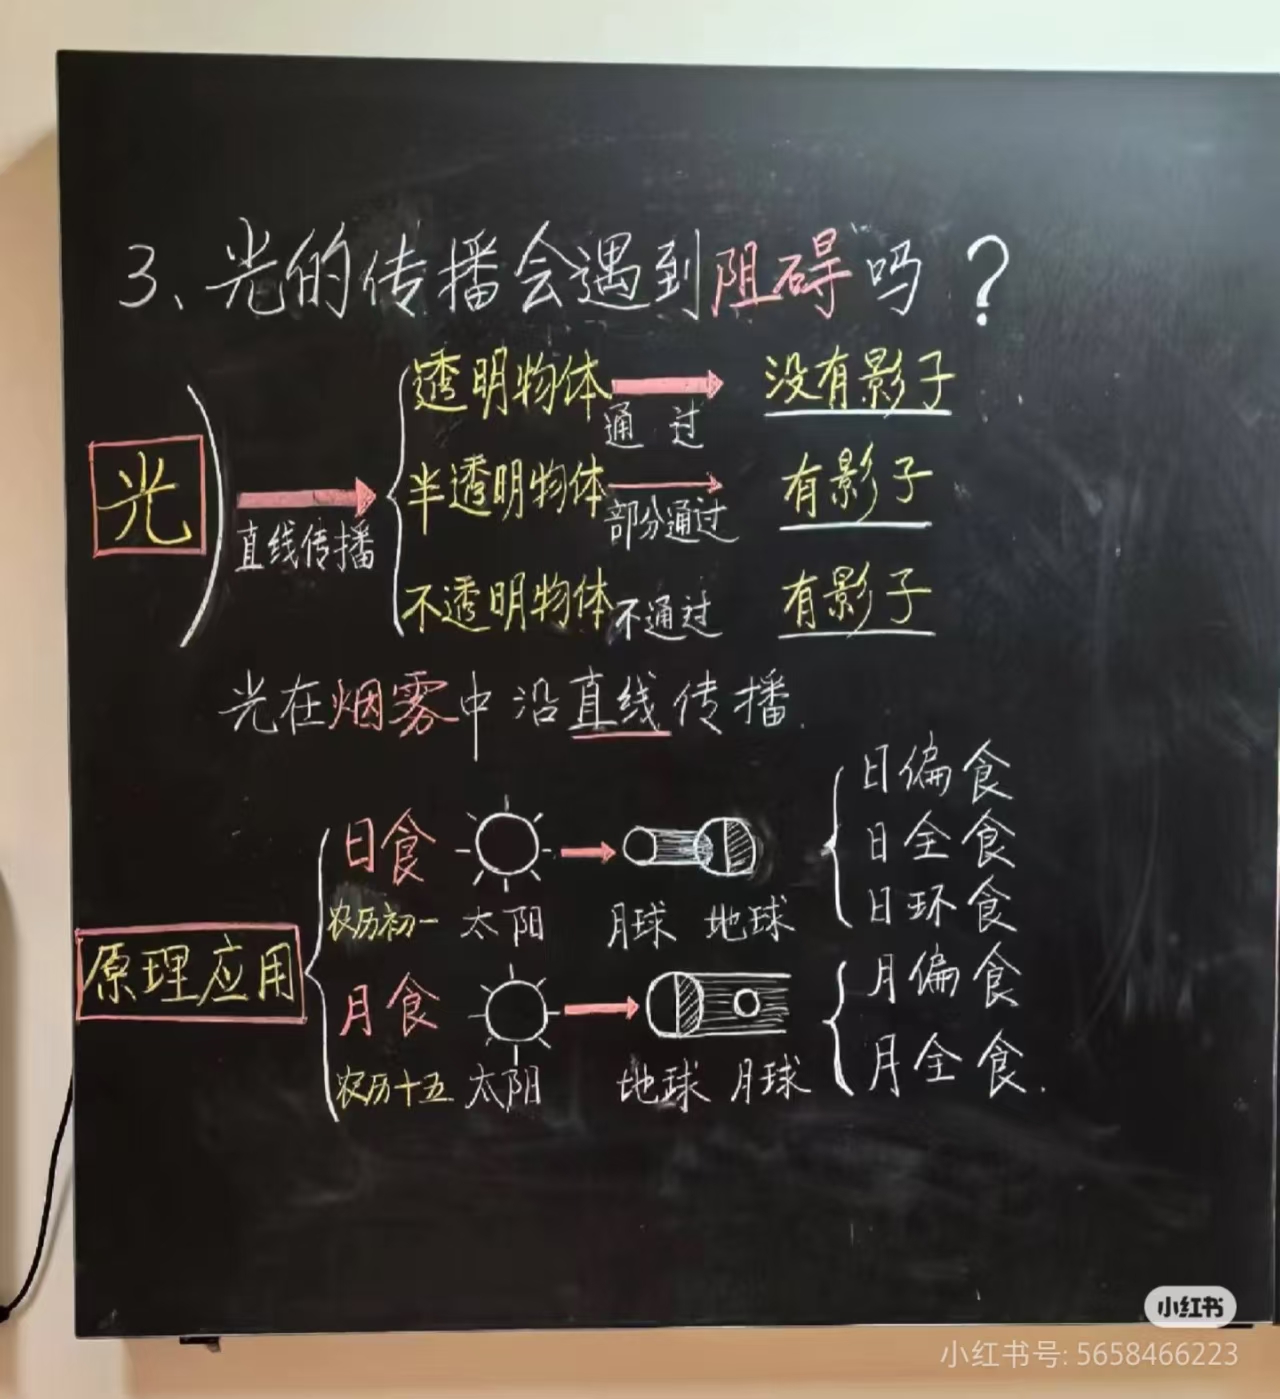 3、光的传播会遇到阻碍吗？
光
直线传播
透明物体 通过 没有影子
半透明物体 部分通过 有影子
不透明物体 不通过 有影子
光在烟雾中沿直线传播.
原理应用
日食
农历初一 太阳 月球 地球
日偏食
日全食
日环食
月食
农历十五 太阳 地球 月球
月偏食
月全食.
小红书
小红书号: 5658466223